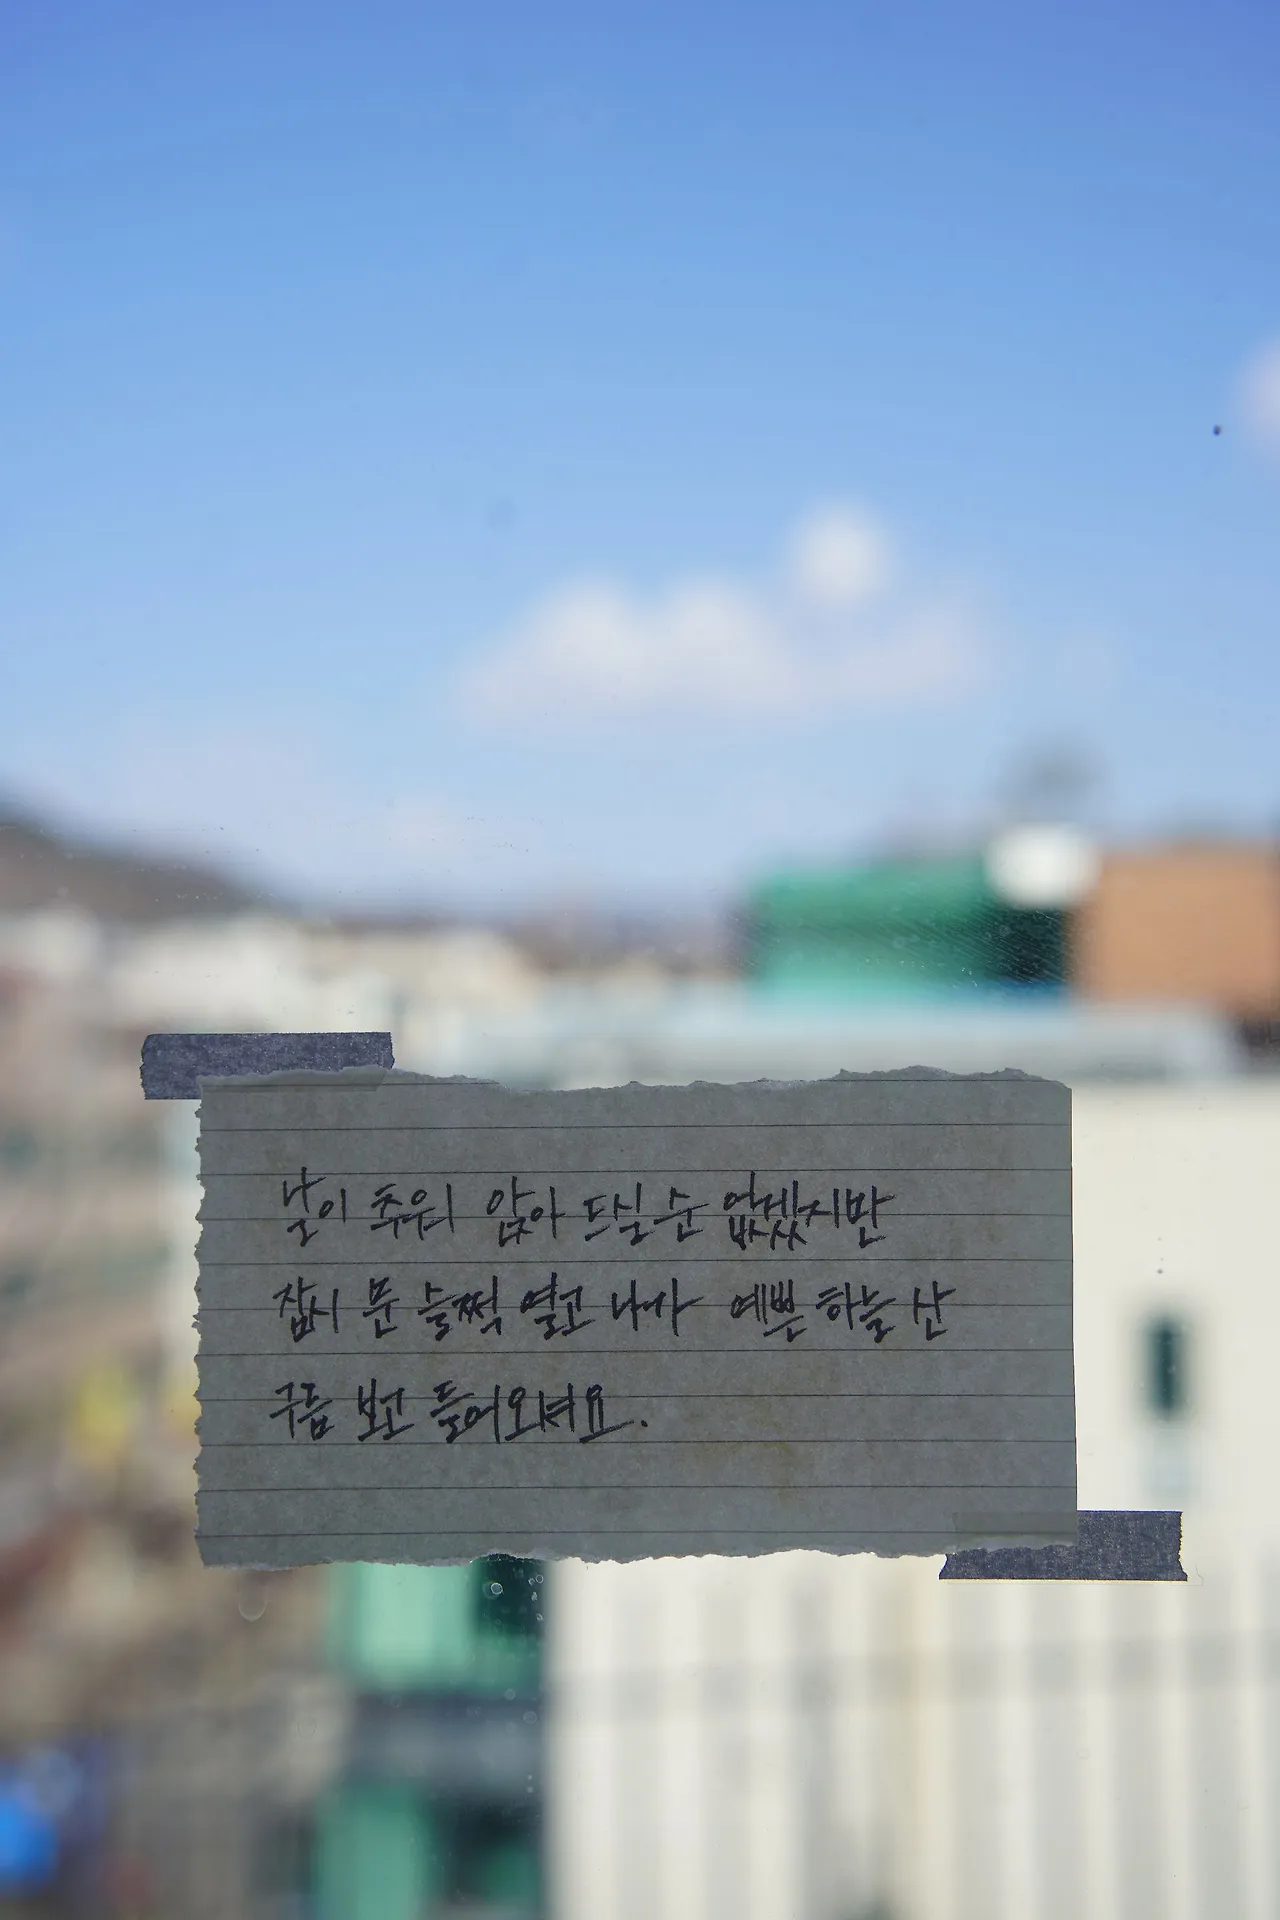 날이 추워 앉아 드실 순 없겠지만
잠시 문 슬쩍 열고 나가 예쁜 하늘 산
구름 보고 들어오셔요.